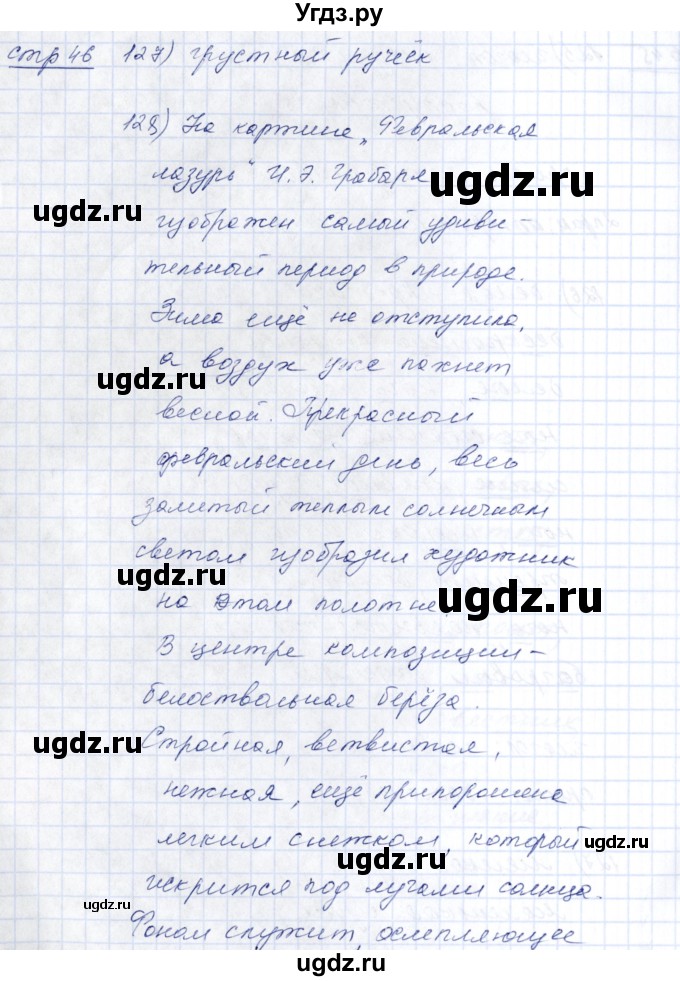 Угдз.ру
стр 46 127) грустный ручеёк
128) На картине „Февральская
лазурь" И. Э. Грабаря
ugdz.ru
ugdz.ru
изображен самый удиви-
тельный период в природе.
Зима ещё не отступила,
а воздух уже пахнет
ugdz.ru
ugdz.ru
весной. Прекрасный
февральский день, весь
залитый теплым солнечным
светом изобразил художник
ugdz.ru
ugdz.ru
на этом полотне.
В центре композиции -
белоствольная берёза.
ugdz.ru
Стройная, ветвистая,
ugdz.ru
нежная, ещё припорошена
легким снежком, который
ugdz.ru
ugdz.ru
искрится под лучами солнца.
ugdz.ru
Фоном служит ослепляющее
ugdz.ru